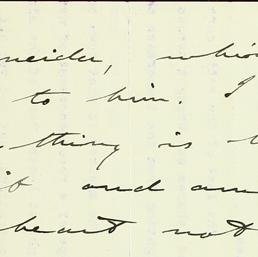 neider, whi
to him. I
thing is t
it and am
heart not